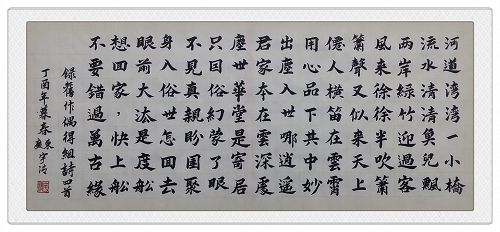 河道湾湾一小橋
流水清清魚兒飄
兩岸綠竹迎過客
風来徐徐半吹簫
簫聲又似来天上
僊人橫笛在雲霄
用心品下其中妙
出塵入世哪逍遥
君家本在雲深處
塵世華堂是寄居
只因俗幻蒙了眼
不見真親盼團聚
身入俗世怎回去
眼前大法是度船
想回家,快上船
不要錯過萬古緣
録舊作偶得組詩四首
丁酉年暮春